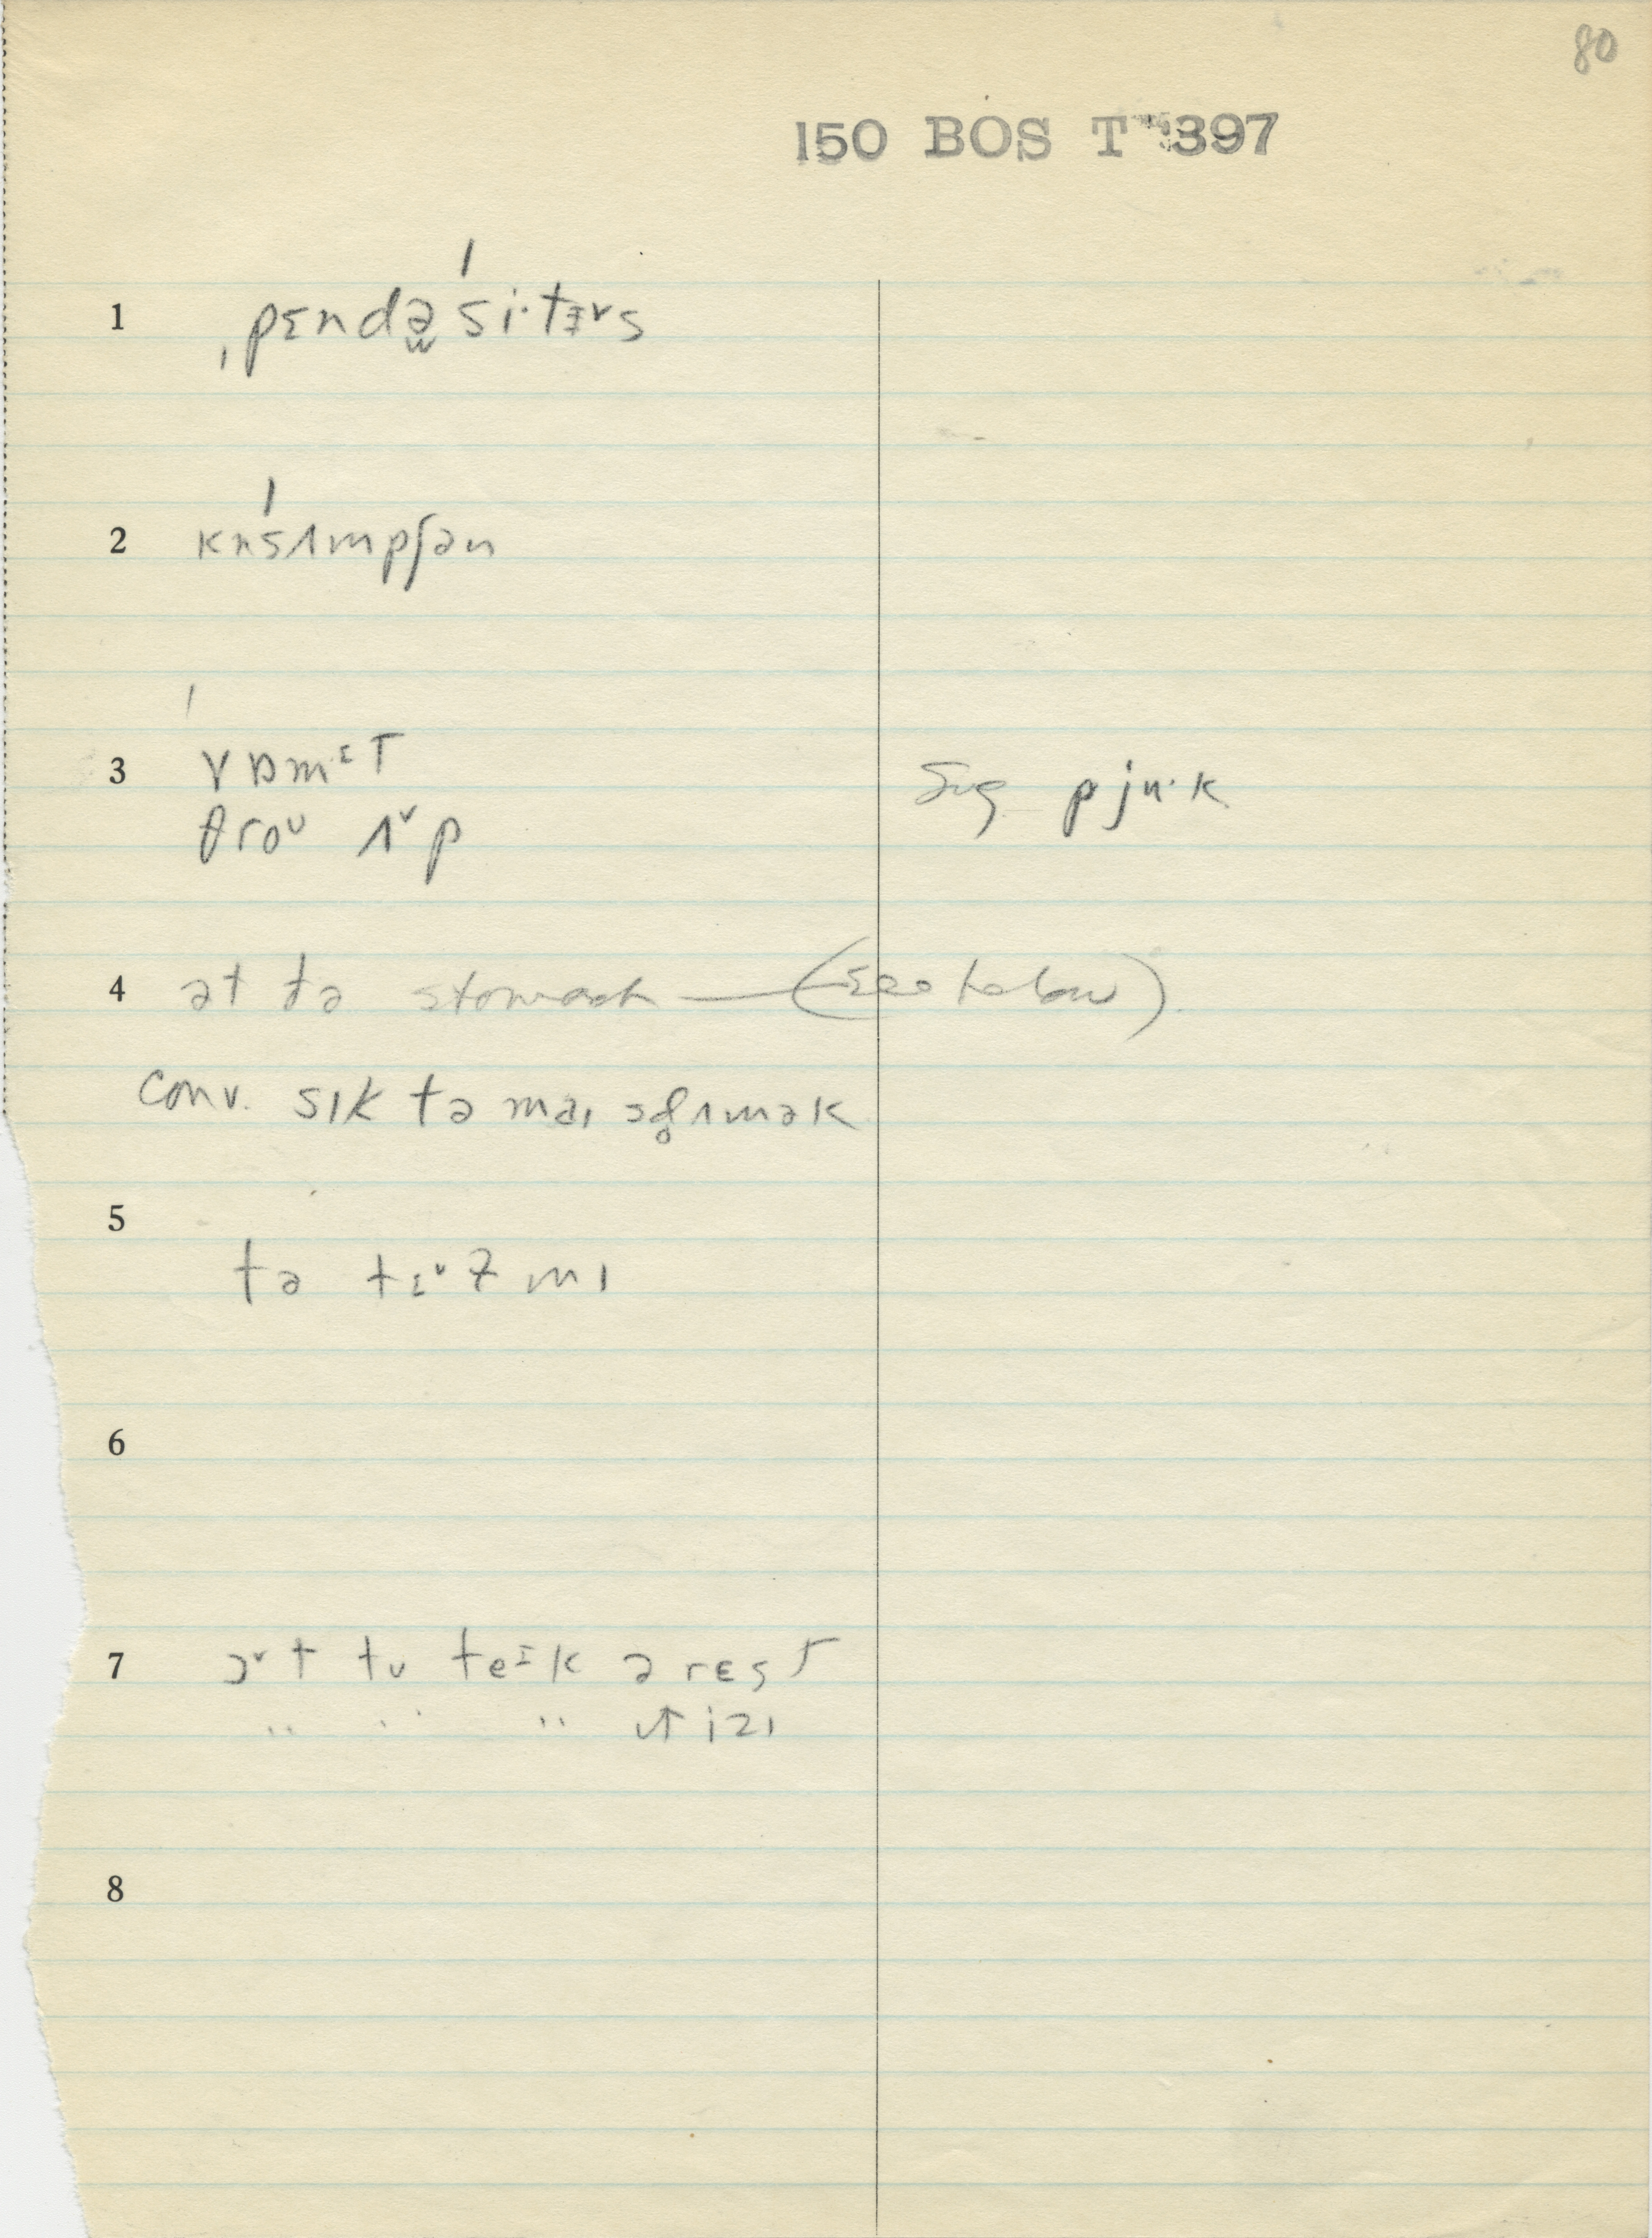 80
150 BOS T 397
1 ˌpɛndə̫ˈsi·tᵻ˅s
2 kn̩ˈsʌmpʃən
3 ˈvɒmᶦT
θroᵁ ʌ˅p
Sug. pju·k
4 ət ðə stomach — (see below)
conv. sɪk tə maɪ sd̥ʌmək
5 tə tɪ˅z mɪ
6
7 ɔ˅t tu teᶦk ə rɛst
" " " ɪt izɪ
8